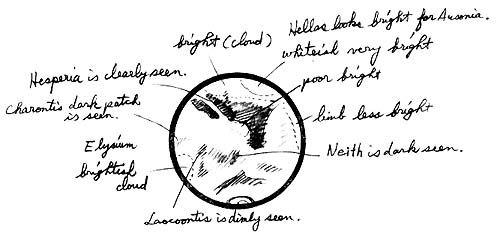 Hellas looks bright for Ausonia.
bright (cloud)
whiteish very bright
Hesperia is clearly seen.
poor bright
Charontis dark patch
is seen.
limb less bright
Elysium
brightish
cloud
Neith is dark seen.
Laocoontis is dimly seen.